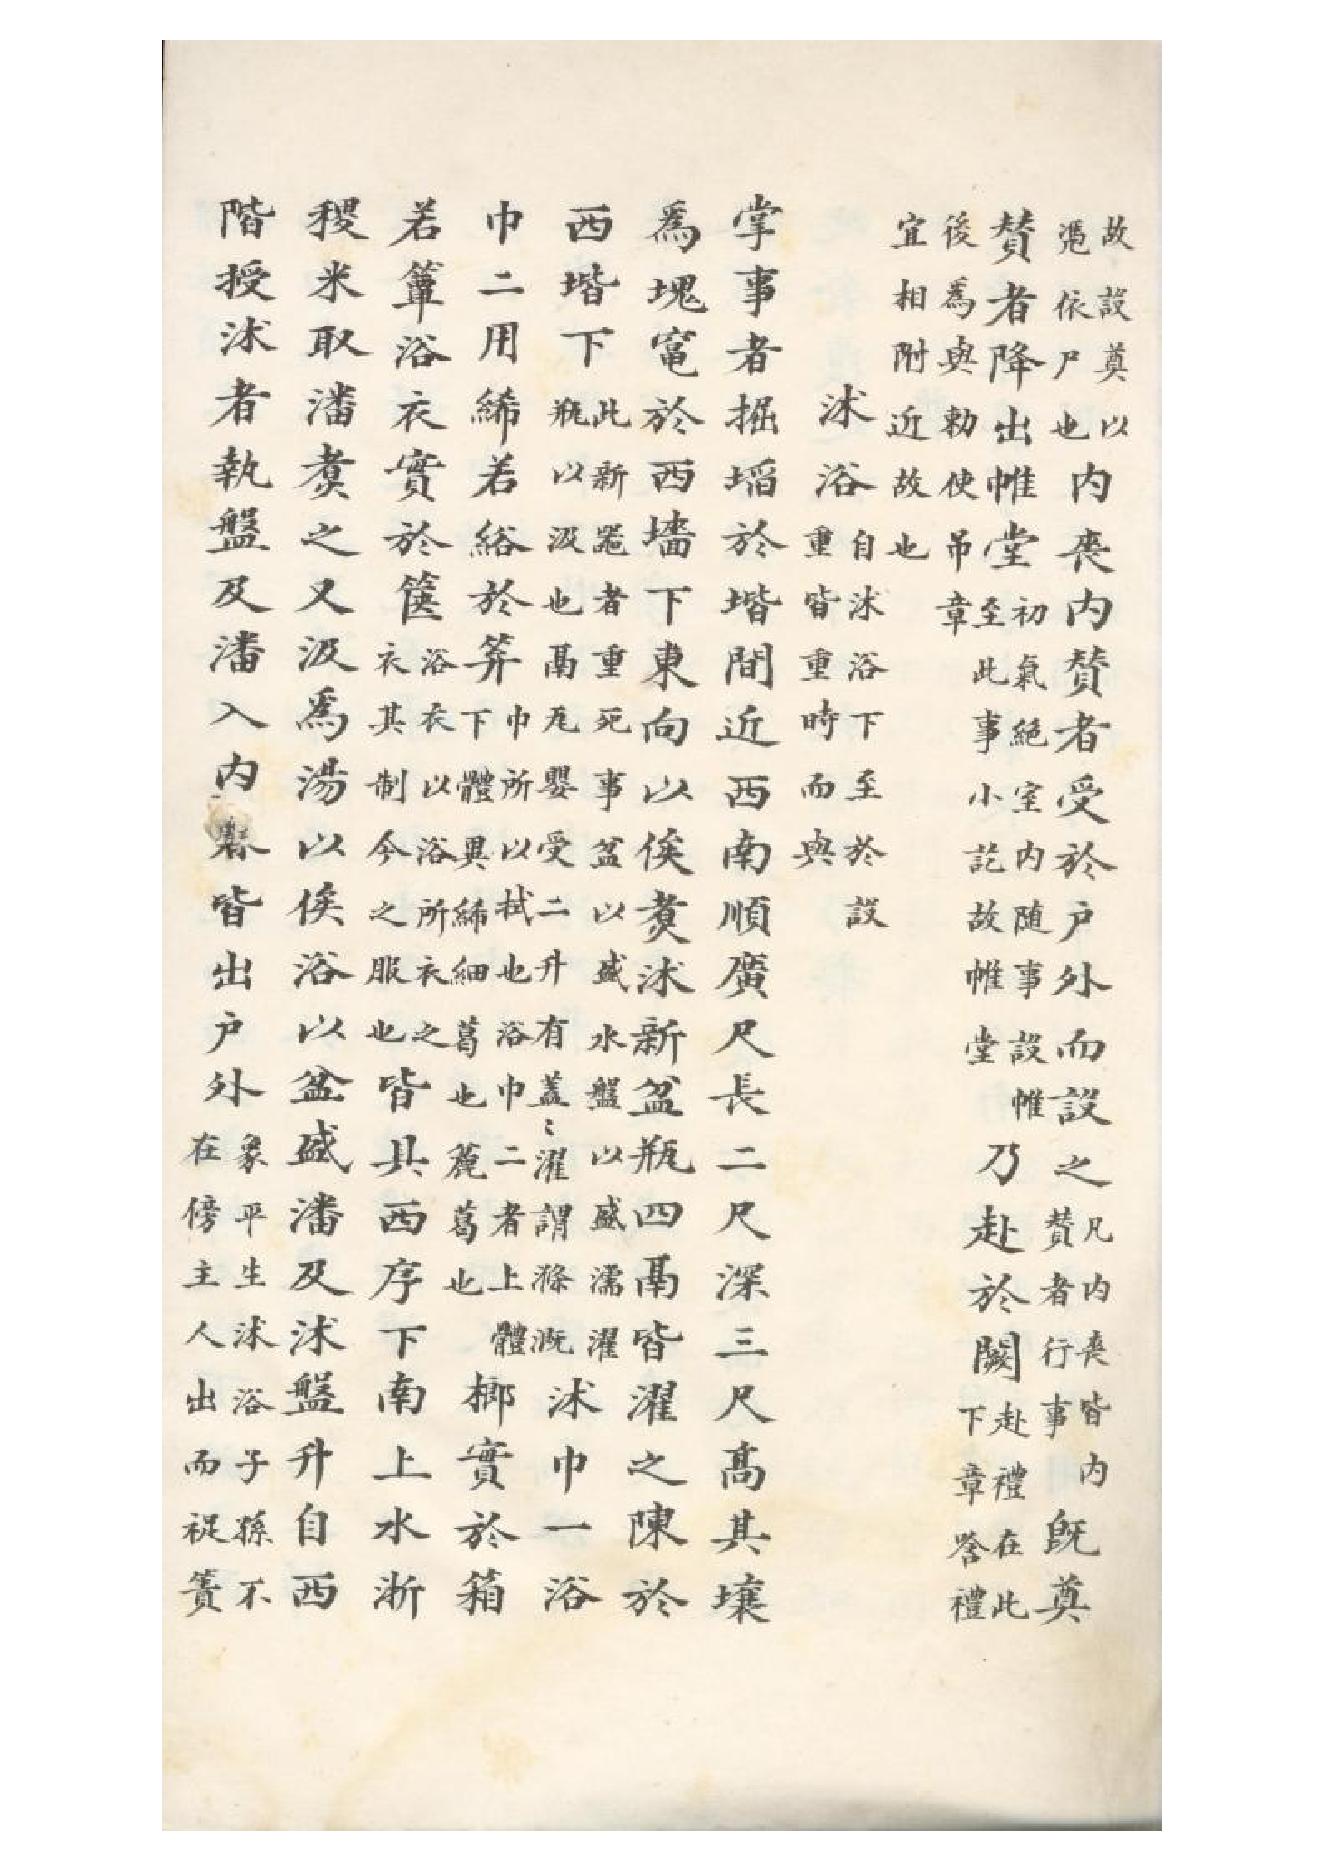 故設奠以憑依尸也內喪內贊者受於戶外而設之凡內喪皆內贊者行事既奠
贊者降出帷堂初氣絕室內随事設帷至此事小訖故帷堂乃赴於闕赴禮在此下章
後為與勅使吊章宜相附近故也
沭浴自沭浴下至於設重皆重時而與
掌事者掘坮於堦間近西南順廣尺長二尺深三尺高其壤
爲塊竃於西墻下東向以俟煑沭新盆瓶四鬲皆濯之陳於
西堦下此新器者重死事盆以盛水盤以盛濡濯瓶以汲也鬲瓦嬰受二升有蓋〻濯謂滌溉沭巾一浴
巾二用絺若綌於笲巾所以拭也浴巾二者上體下體異絺細葛也麁葛也櫛實於箱
若簟浴衣實於篋浴衣以浴所衣之衣其制今之服也皆具西序下南上水淅
稷米取潘煑之又汲爲湯以俟浴以盆盛潘及沭盤升自西
階授沭者執盤及潘入内皆出戶外象平生沭浴子孫不在傍主人出而袒簀